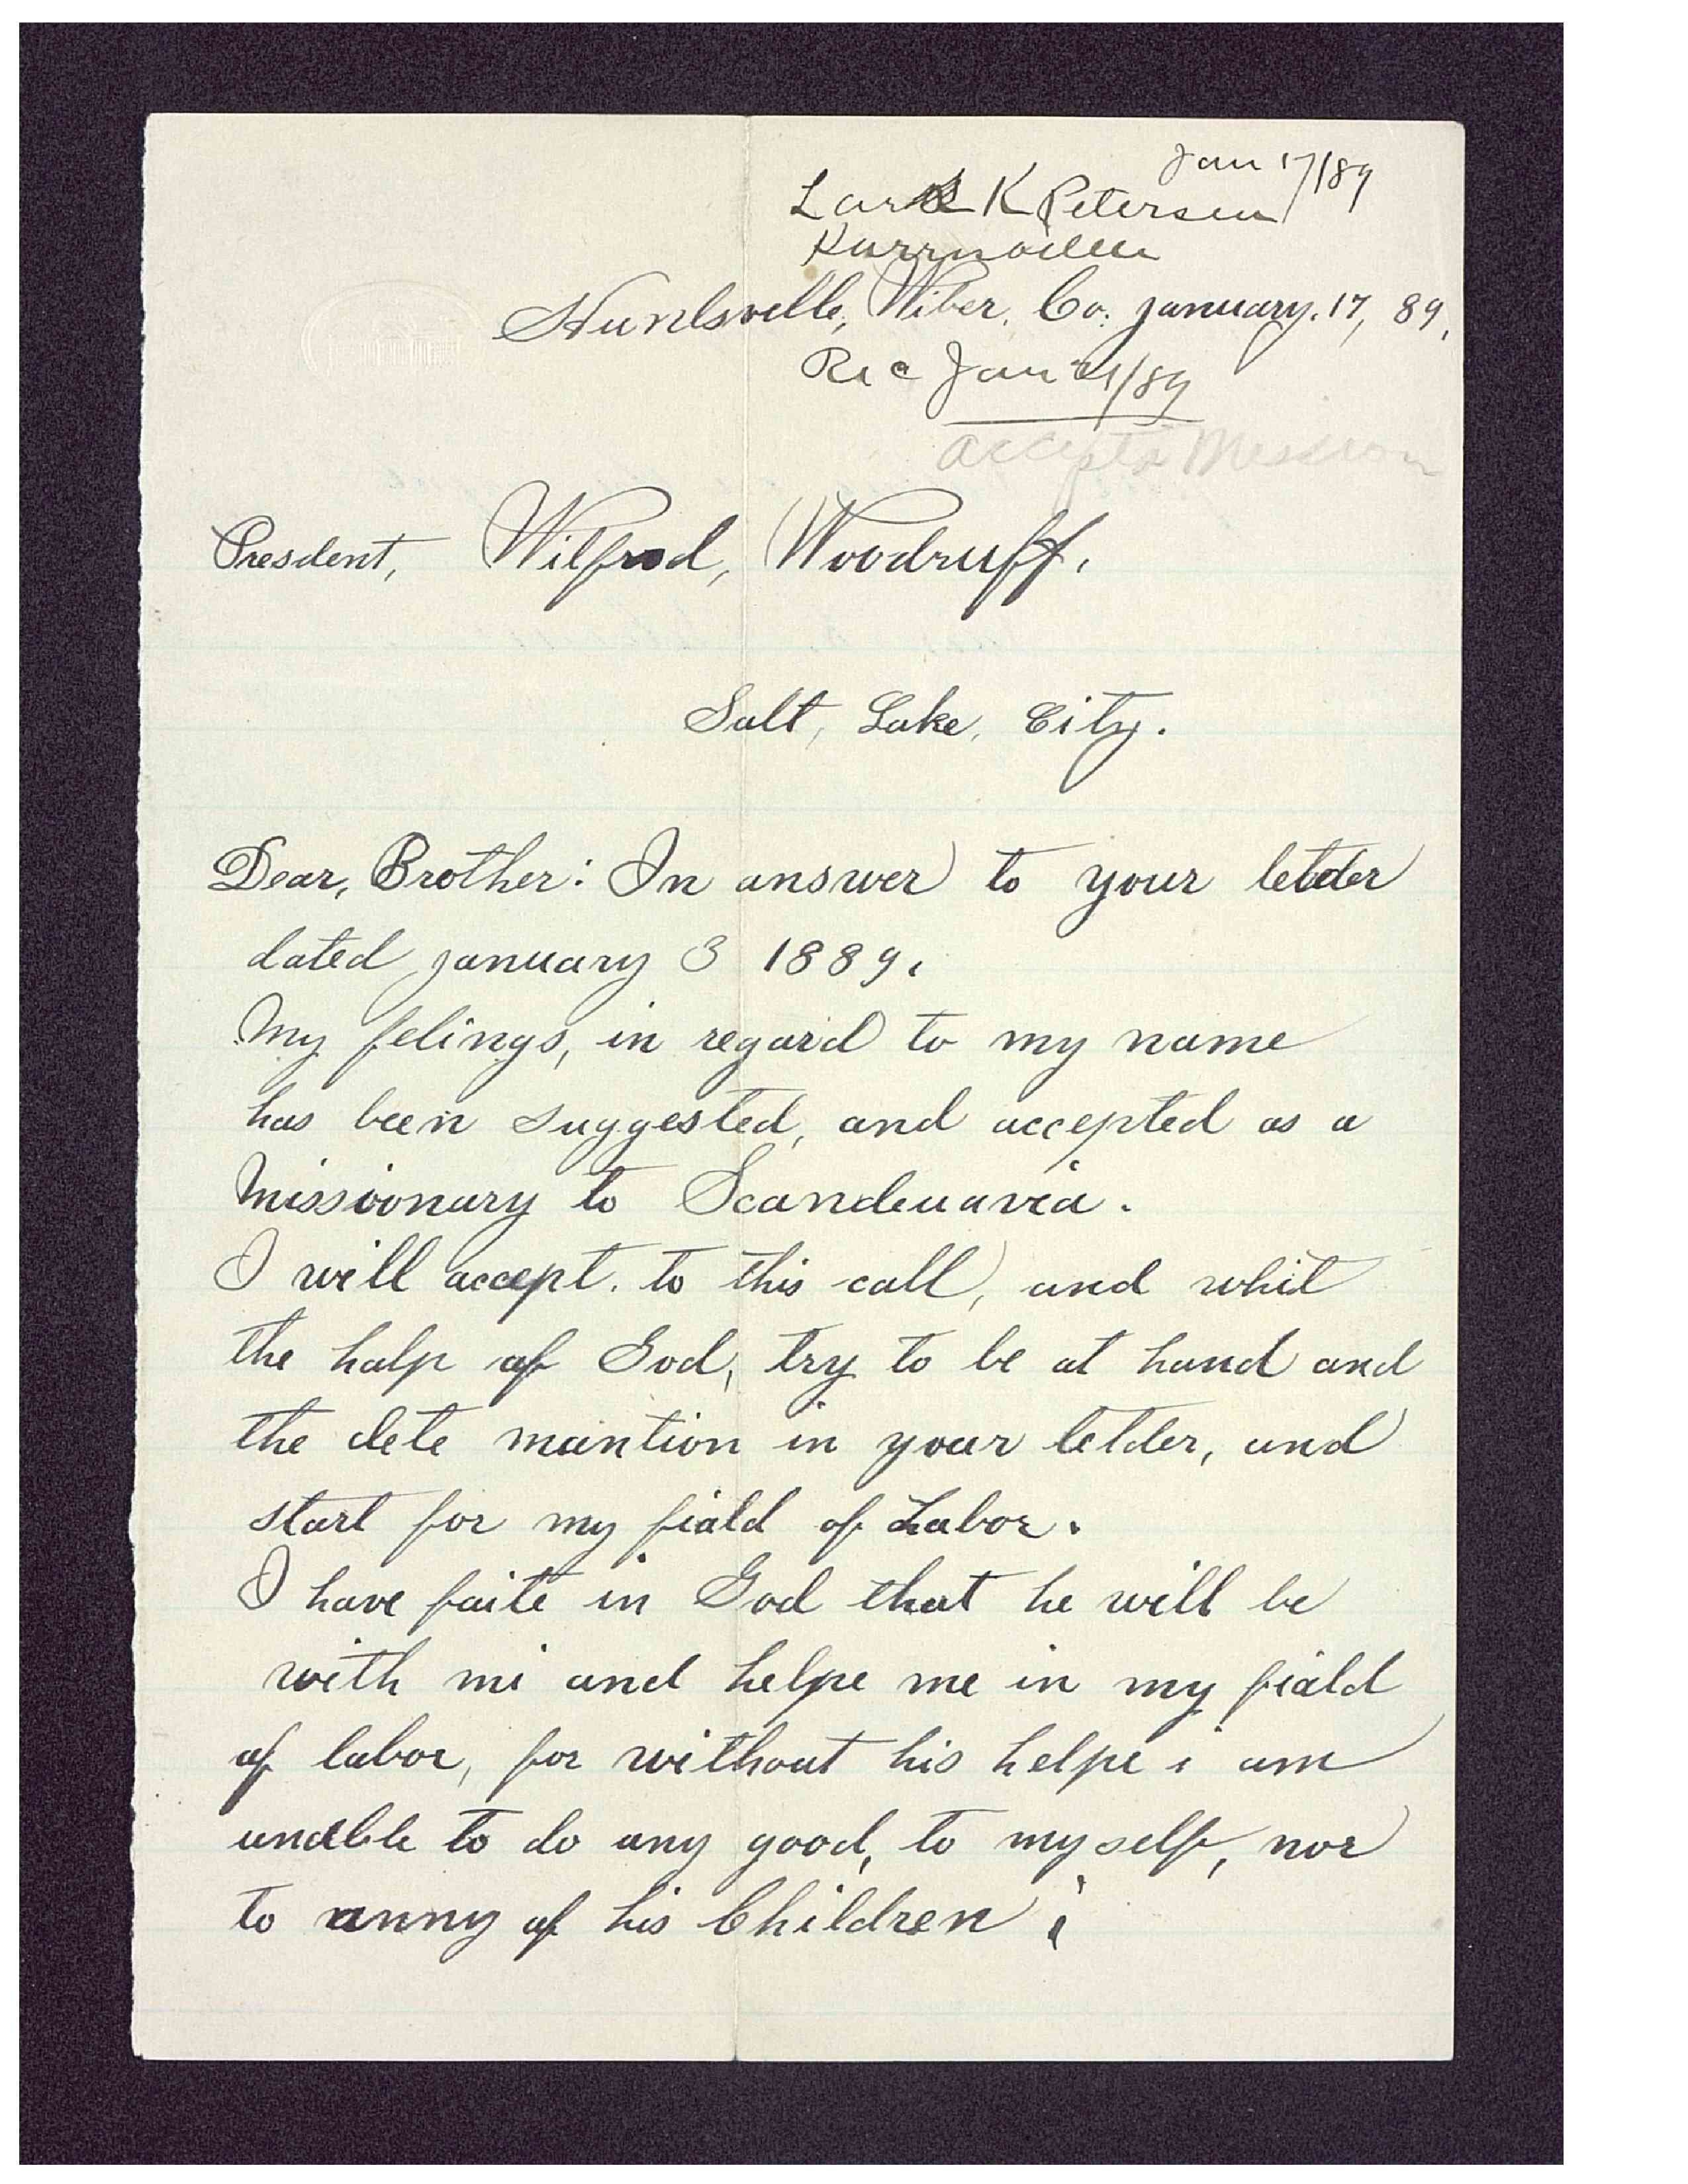 Jan 17/89
Lars K Petersen
Huntsville, Wiber, Co: january. 17, 89,
Rec Jan 21/89
accepts Mission
Presdent, Wilfrod, Woodruff.
Salt, Lake, City.
Dear, Brother: In answer to your letder
dated january 3 1889.
My felings, in regard to my name
has been suggested, and accepted as a
Missionary to Scandenavia.
I will accept. to this call, and whit
the halp af God, try to be at hand and
the dete mantion in your letder, and
start for my fiald of Labor.
I have faite in God that he will be
with mi and helpe me in my fiald
af labor, for without his helpe i am
unable to do any good, to my self, nor
to anny af his Children.